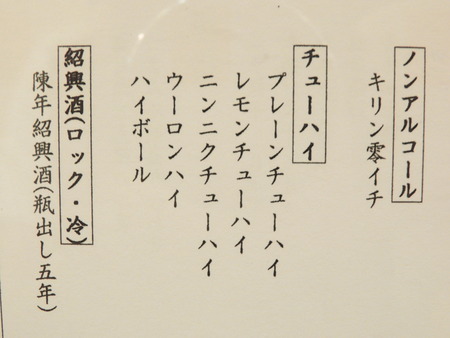 ノンアルコール
キリン零イチ
チューハイ
プレーンチューハイ
レモンチューハイ
ニンニクチューハイ
ウーロンハイ
ハイボール
紹興酒(ロック・冷)
陳年紹興酒(瓶出し五年)